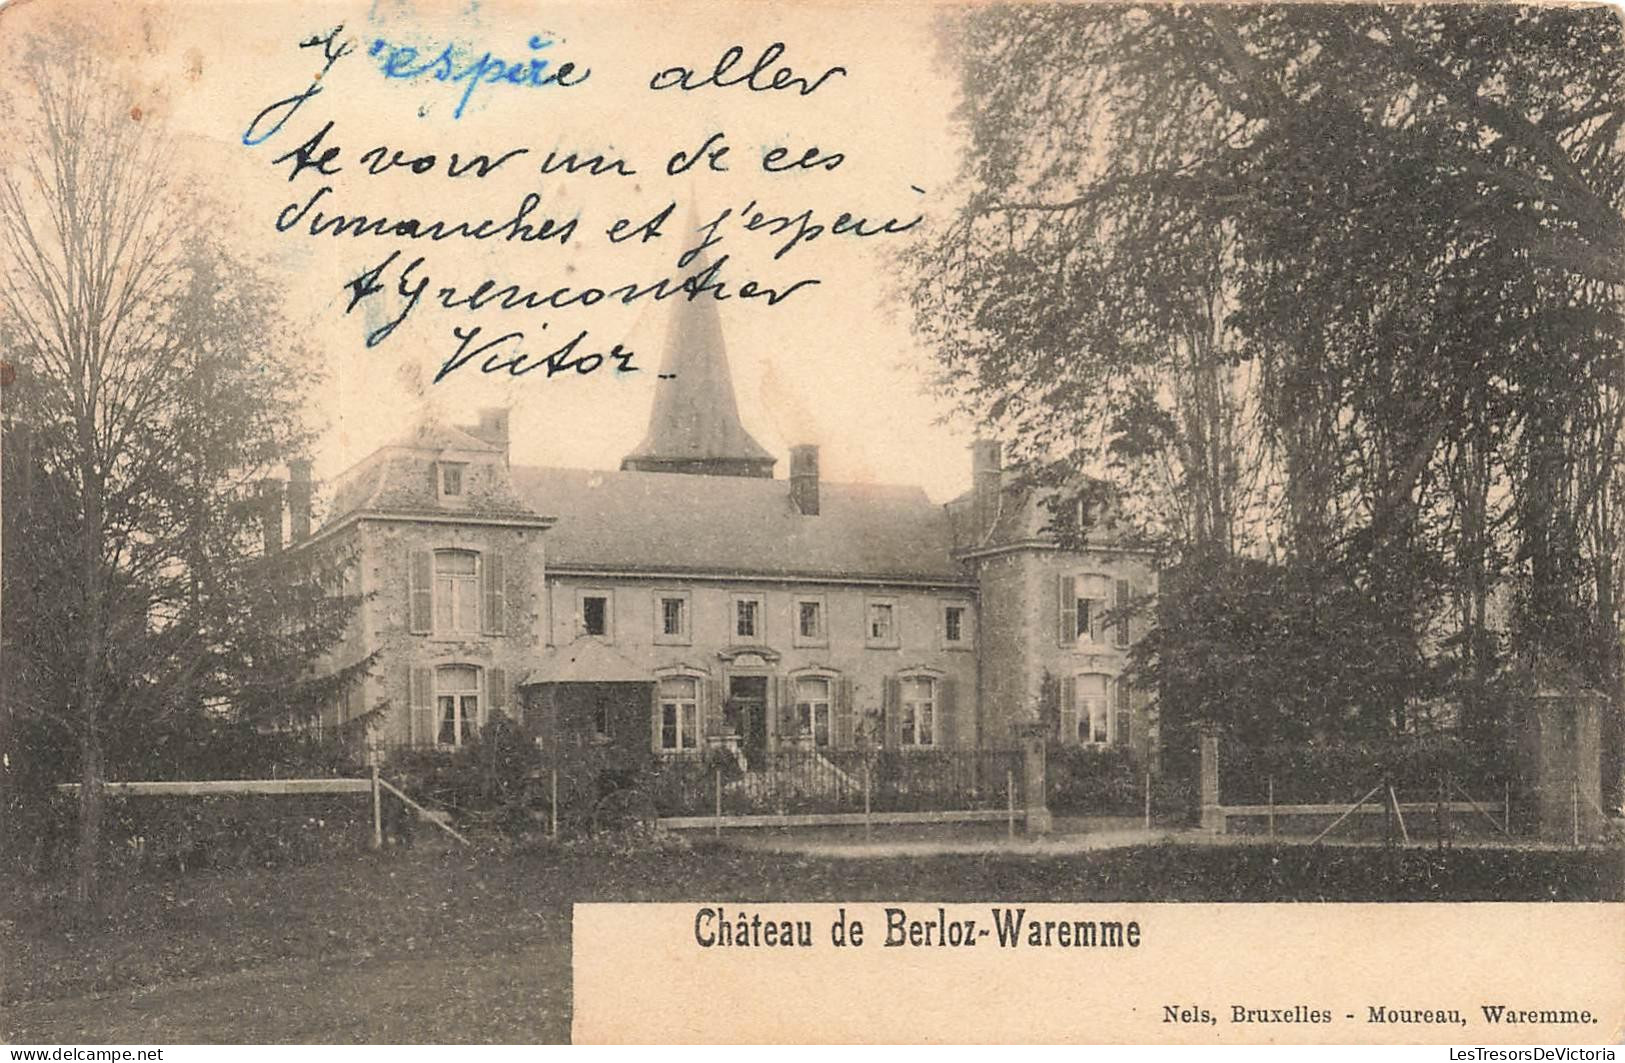 J'espère aller
te voir un de ces
dimanches et j'espère
t'y rencontrer
Victor
Château de Berloz-Waremme
Nels, Bruxelles - Moureau, Waremme.
LesTresorsDeVictoria